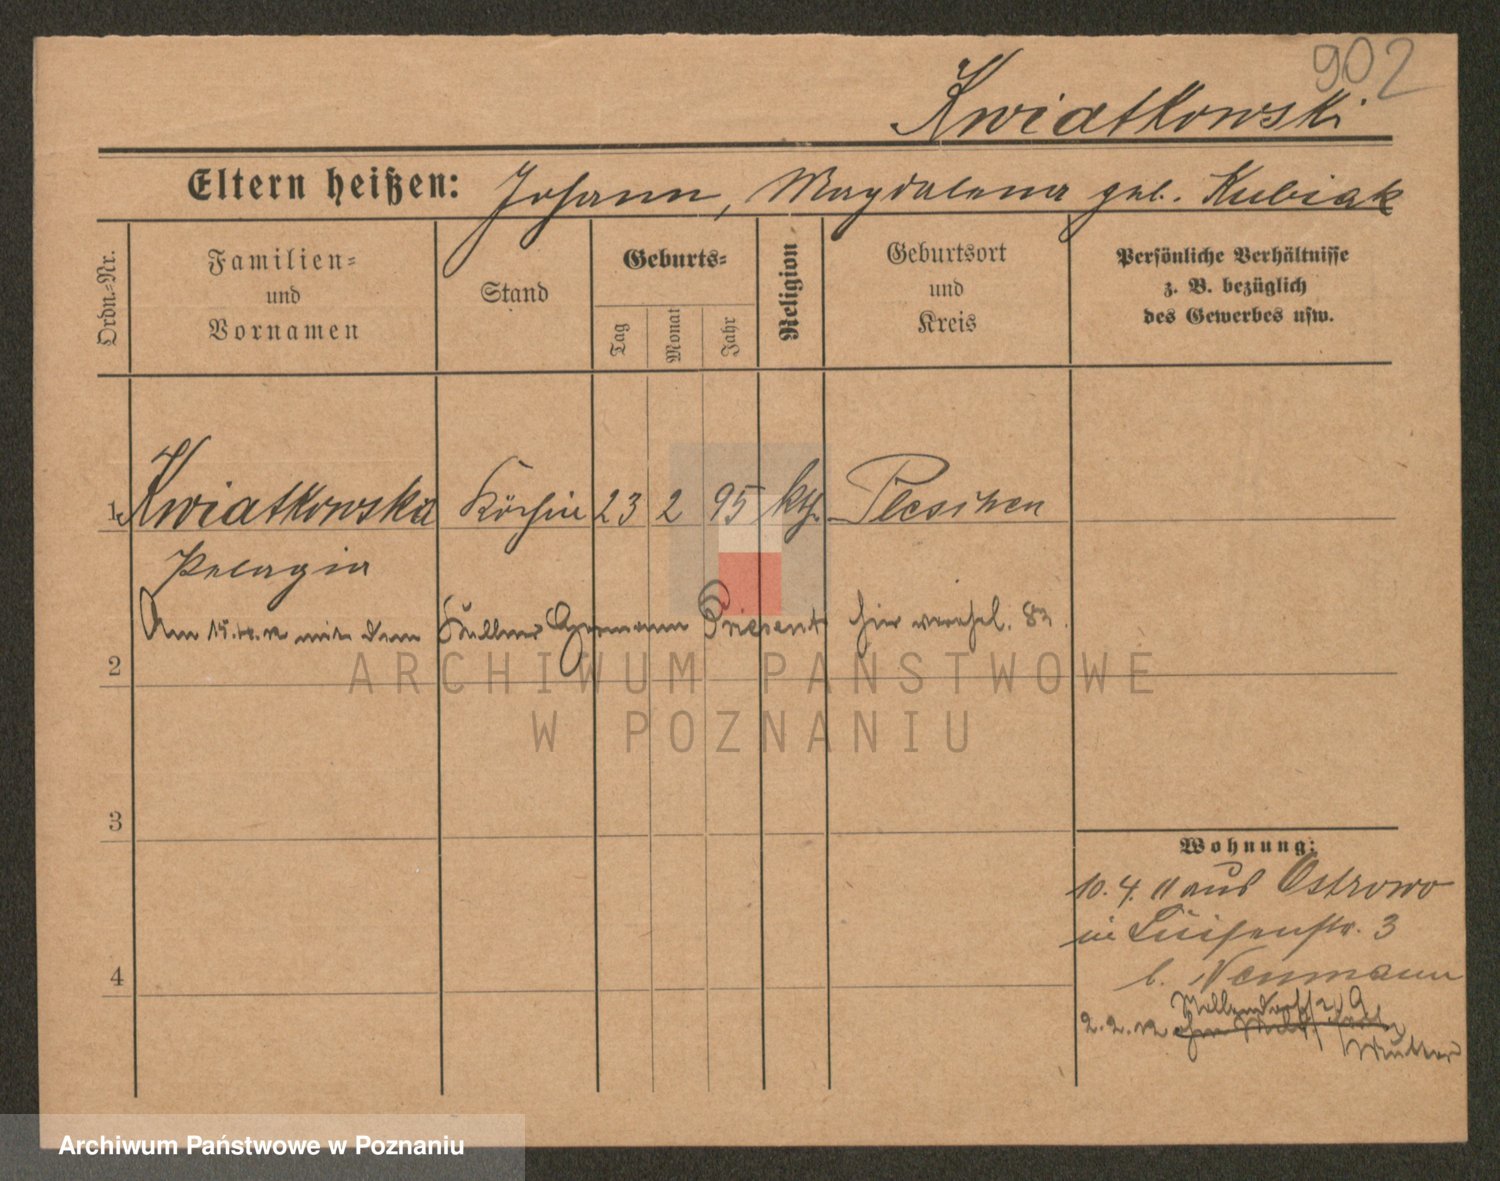 902
Kwiatkowski
Eltern heißen: Johann, Magdalena geb. Kubiak
Ordn.-Nr.
Familien-
und
Vornamen
Stand
Geburts-
Tag
Monat
Jahr
Religion
Geburtsort
und
Kreis
Persönliche Verhältnisse
z. B. bezüglich
des Gewerbes usw.
1 Kwiatkowska Köchin 23 2 95 kth. Pleschen
Pelagia
Am mit dem Kellner Hermann Priesent hier verehel.
2
3
4
Wohnung:
10. 4. 11 aus Ostrowo
in Luisenstr. 3
b. Neumann
2. 2. 12
Mutter
ARCHIWUM PAŃSTWOWE
W POZNANIU
Archiwum Państwowe w Poznaniu